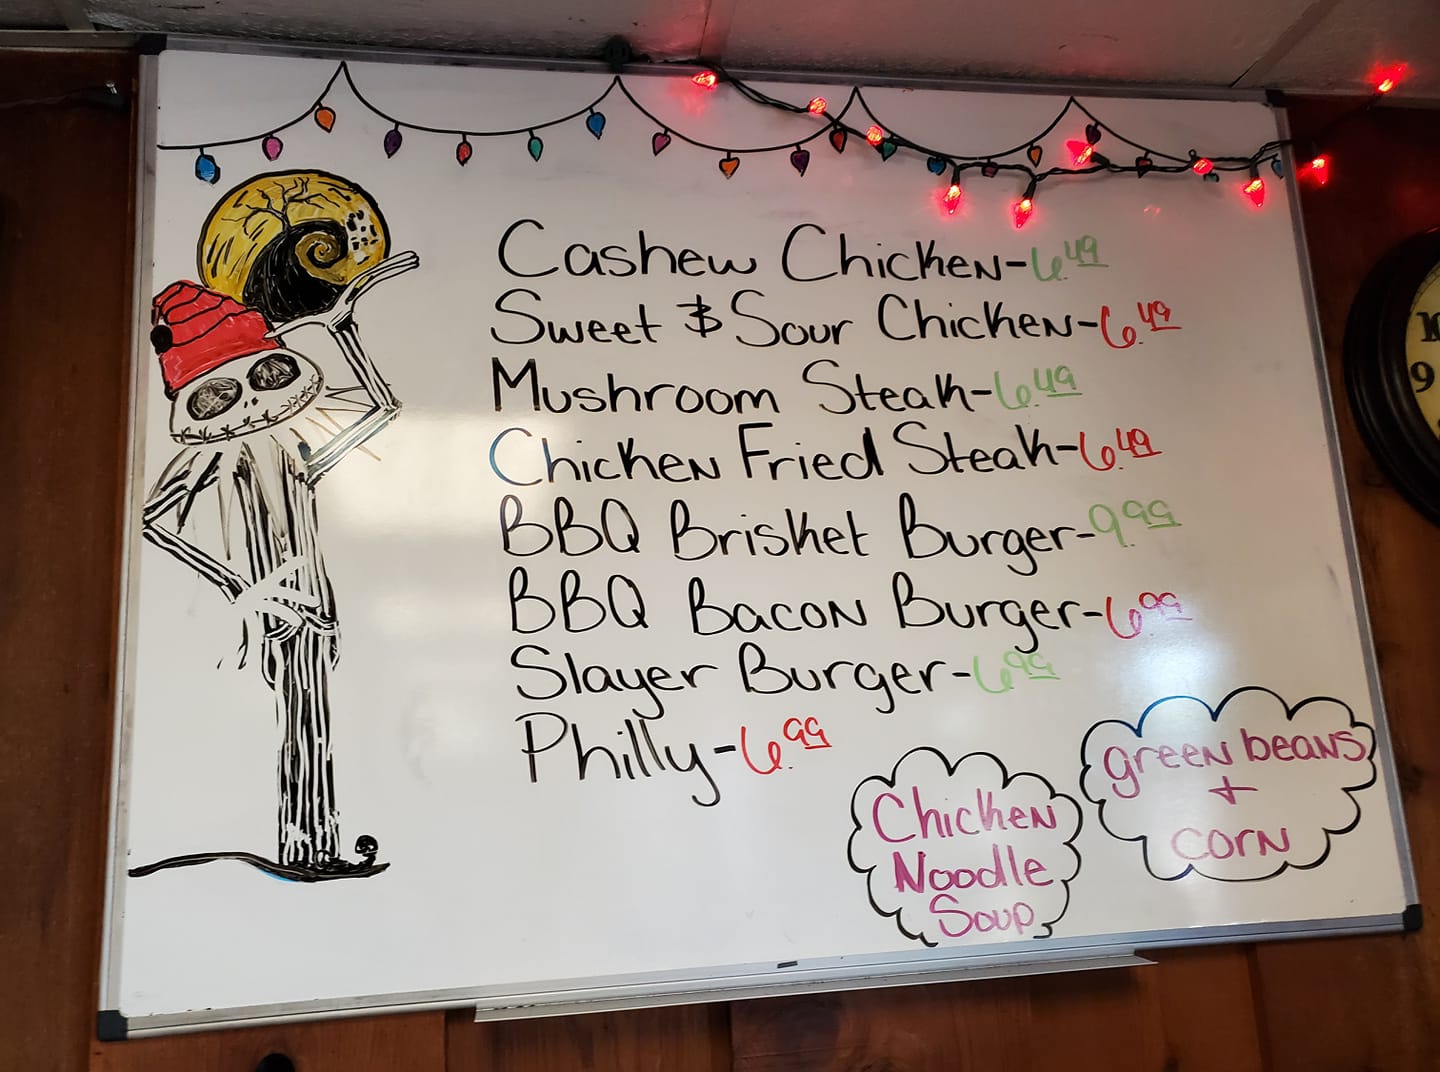 Cashew Chicken-6.49
Sweet & Sour Chicken-6.49
Mushroom Steak-6.49
Chicken Fried Steak-6.49
BBQ Brisket Burger-9.99
BBQ Bacon Burger-6.99
Slayer Burger-6.99
Philly-6.99
Chicken
Noodle
Soup
green beans
+
corn
10
9